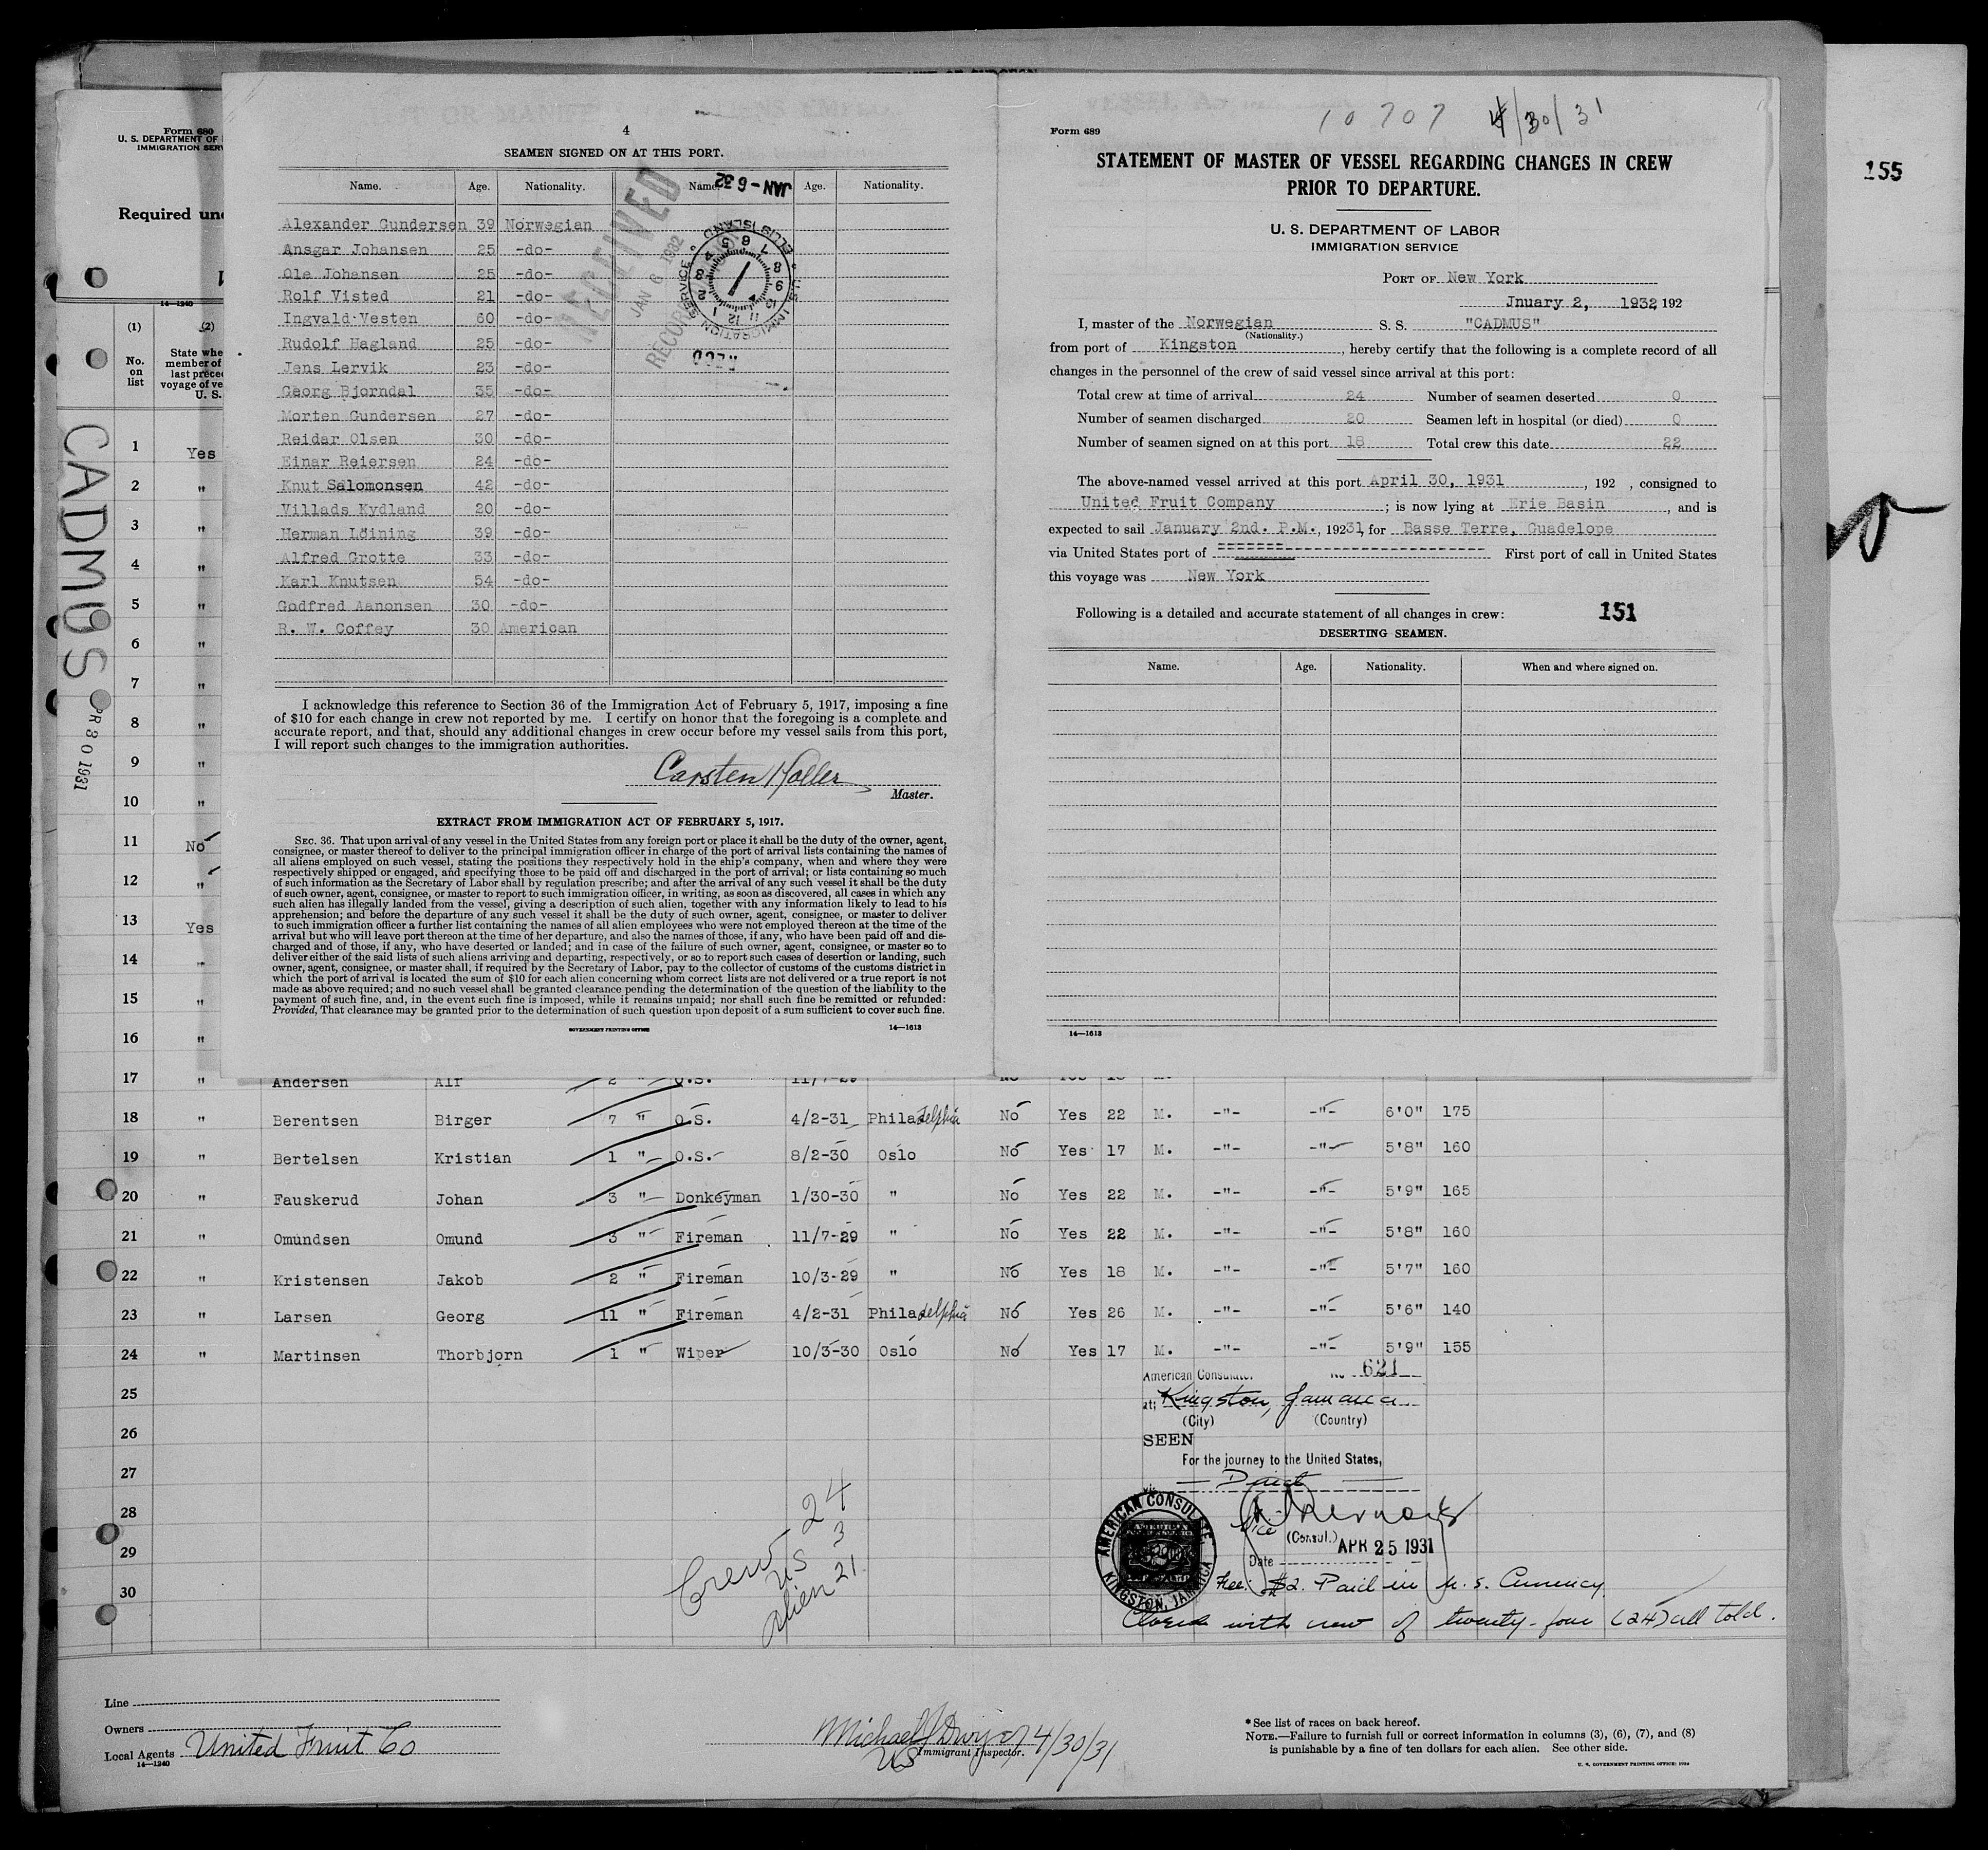 155
Form 680
U. S. DEPARTMENT OF
IMMIGRATION SERV
Required und
14—1240
(1) (2)
No. on list
State whe
member of
last prece
voyage of ve
U. S.
CADMUS
PR 30 1931
1 Yes
2 "
3 "
4 "
5 "
6 "
7 "
8 "
9 "
10 "
11 No
12 "
13 Yes
14 "
15 "
16 "
4
SEAMEN SIGNED ON AT THIS PORT.
Name. Age. Nationality. Name. Age. Nationality.
JAN -6 32
RECEIVED
JAN 6 1932
RECORD
U.S. IMMIGRATION SERVICE ELLIS ISLAND
Alexander Gundersen 39 Norwegian
Ansgar Johansen 25 -do-
Ole Johansen 25 -do-
Rolf Visted 21 -do-
Ingvald Vesten 60 -do-
Rudolf Hagland 25 -do-
Jens Lervik 23 -do-
Georg Bjorndal 35 -do-
Morten Gundersen 27 -do-
Reidar Olsen 30 -do-
Einar Reiersen 24 -do-
Knut Salomonsen 42 -do-
Villads Kydland 20 -do-
Herman Löining 39 -do-
Alfred Grotte 33 -do-
Karl Knutsen 54 -do-
Godfred Aanonsen 30 -do-
R. W. Coffey 30 American
I acknowledge this reference to Section 36 of the Immigration Act of February 5, 1917, imposing a fine
of $10 for each change in crew not reported by me. I certify on honor that the foregoing is a complete and
accurate report, and that, should any additional changes in crew occur before my vessel sails from this port,
I will report such changes to the immigration authorities.
Carsten Holler
Master.
EXTRACT FROM IMMIGRATION ACT OF FEBRUARY 5, 1917.
SEC. 36. That upon arrival of any vessel in the United States from any foreign port or place it shall be the duty of the owner, agent,
consignee, or master thereof to deliver to the principal immigration officer in charge of the port of arrival lists containing the names of
all aliens employed on such vessel, stating the positions they respectively hold in the ship's company, when and where they were
respectively shipped or engaged, and specifying those to be paid off and discharged in the port of arrival; or lists containing so much
of such information as the Secretary of Labor shall by regulation prescribe; and after the arrival of any such vessel it shall be the duty
of such owner, agent, consignee, or master to report to such immigration officer, in writing, as soon as discovered, all cases in which any
such alien has illegally landed from the vessel, giving a description of such alien, together with any information likely to lead to his
apprehension; and before the departure of any such vessel it shall be the duty of such owner, agent, consignee, or master to deliver
to such immigration officer a further list containing the names of all alien employees who were not employed thereon at the time of the
arrival but who will leave port thereon at the time of her departure, and also the names of those, if any, who have been paid off and dis-
charged and of those, if any, who have deserted or landed; and in case of the failure of such owner, agent, consignee, or master so to
deliver either of the said lists of such aliens arriving and departing, respectively, or so to report such cases of desertion or landing, such
owner, agent, consignee, or master shall, if required by the Secretary of Labor, pay to the collector of customs of the customs district in
which the port of arrival is located the sum of $10 for each alien concerning whom correct lists are not delivered or a true report is not
made as above required; and no such vessel shall be granted clearance pending the determination of the question of the liability to the
payment of such fine, and, in the event such fine is imposed, while it remains unpaid; nor shall such fine be remitted or refunded:
Provided, That clearance may be granted prior to the determination of such question upon deposit of a sum sufficient to cover such fine.
GOVERNMENT PRINTING OFFICE 14—1613
10707 4/30/31
Form 689
STATEMENT OF MASTER OF VESSEL REGARDING CHANGES IN CREW
PRIOR TO DEPARTURE.
U. S. DEPARTMENT OF LABOR
IMMIGRATION SERVICE
PORT OF New York
Jnuary 2, 1932 192
I, master of the Norwegian S. S. "CADMUS"
(Nationality.)
from port of Kingston, hereby certify that the following is a complete record of all
changes in the personnel of the crew of said vessel since arrival at this port:
Total crew at time of arrival 24 Number of seamen deserted 0
Number of seamen discharged 20 Seamen left in hospital (or died) 0
Number of seamen signed on at this port 18 Total crew this date 22
The above-named vessel arrived at this port April 30, 1931, 192 , consigned to
United Fruit Company; is now lying at Erie Basin, and is
expected to sail January 2nd. P.M., 19231, for Basse Terre, Guadelope
via United States port of First port of call in United States
this voyage was New York
Following is a detailed and accurate statement of all changes in crew: 151
DESERTING SEAMEN.
Name. Age. Nationality. When and where signed on.
14—1613
17 " Andersen Alf 2 " O.S. 11/7-29
18 " Berentsen Birger 7 " O.S. 4/2-31 Philadelphia No Yes 22 M. -"- -"- 6'0" 175
19 " Bertelsen Kristian 1 " O.S. 8/2-30 Oslo No Yes 17 M. -"- -"- 5'8" 160
20 " Fauskerud Johan 3 " Donkeyman 1/30-30 " No Yes 22 M. -"- -"- 5'9" 165
21 " Omundsen Omund 3 " Fireman 11/7-29 " No Yes 22 M. -"- -"- 5'8" 160
22 " Kristensen Jakob 2 " Fireman 10/3-29 " No Yes 18 M. -"- -"- 5'7" 160
23 " Larsen Georg 11 " Fireman 4/2-31 Philadelphia No Yes 26 M. -"- -"- 5'6" 140
24 " Martinsen Thorbjorn 1 " Wiper 10/3-30 Oslo No Yes 17 M. -"- -"- 5'9" 155
25
26
27
28
29
30
Crew 24
US 3
Alien 21
American Consulate. No 621
at; Kingston, Jamaica
(City) (Country)
SEEN
For the journey to the United States,
Direct
Vice
(Consul.)
Date APR 25 1931
AMERICAN CONSULATE KINGSTON, JAMAICA
Fee: $2. Paid in U. S. Currency
Closed with crew of twenty-four (24) all told.
Line
Owners
Local Agents United Fruit Co
14—1240
Michael J Dwyer 4/30/31
US Immigrant Inspector.
* See list of races on back hereof.
NOTE.—Failure to furnish full or correct information in columns (3), (6), (7), and (8)
is punishable by a fine of ten dollars for each alien. See other side.
U. S. GOVERNMENT PRINTING OFFICE: 1930